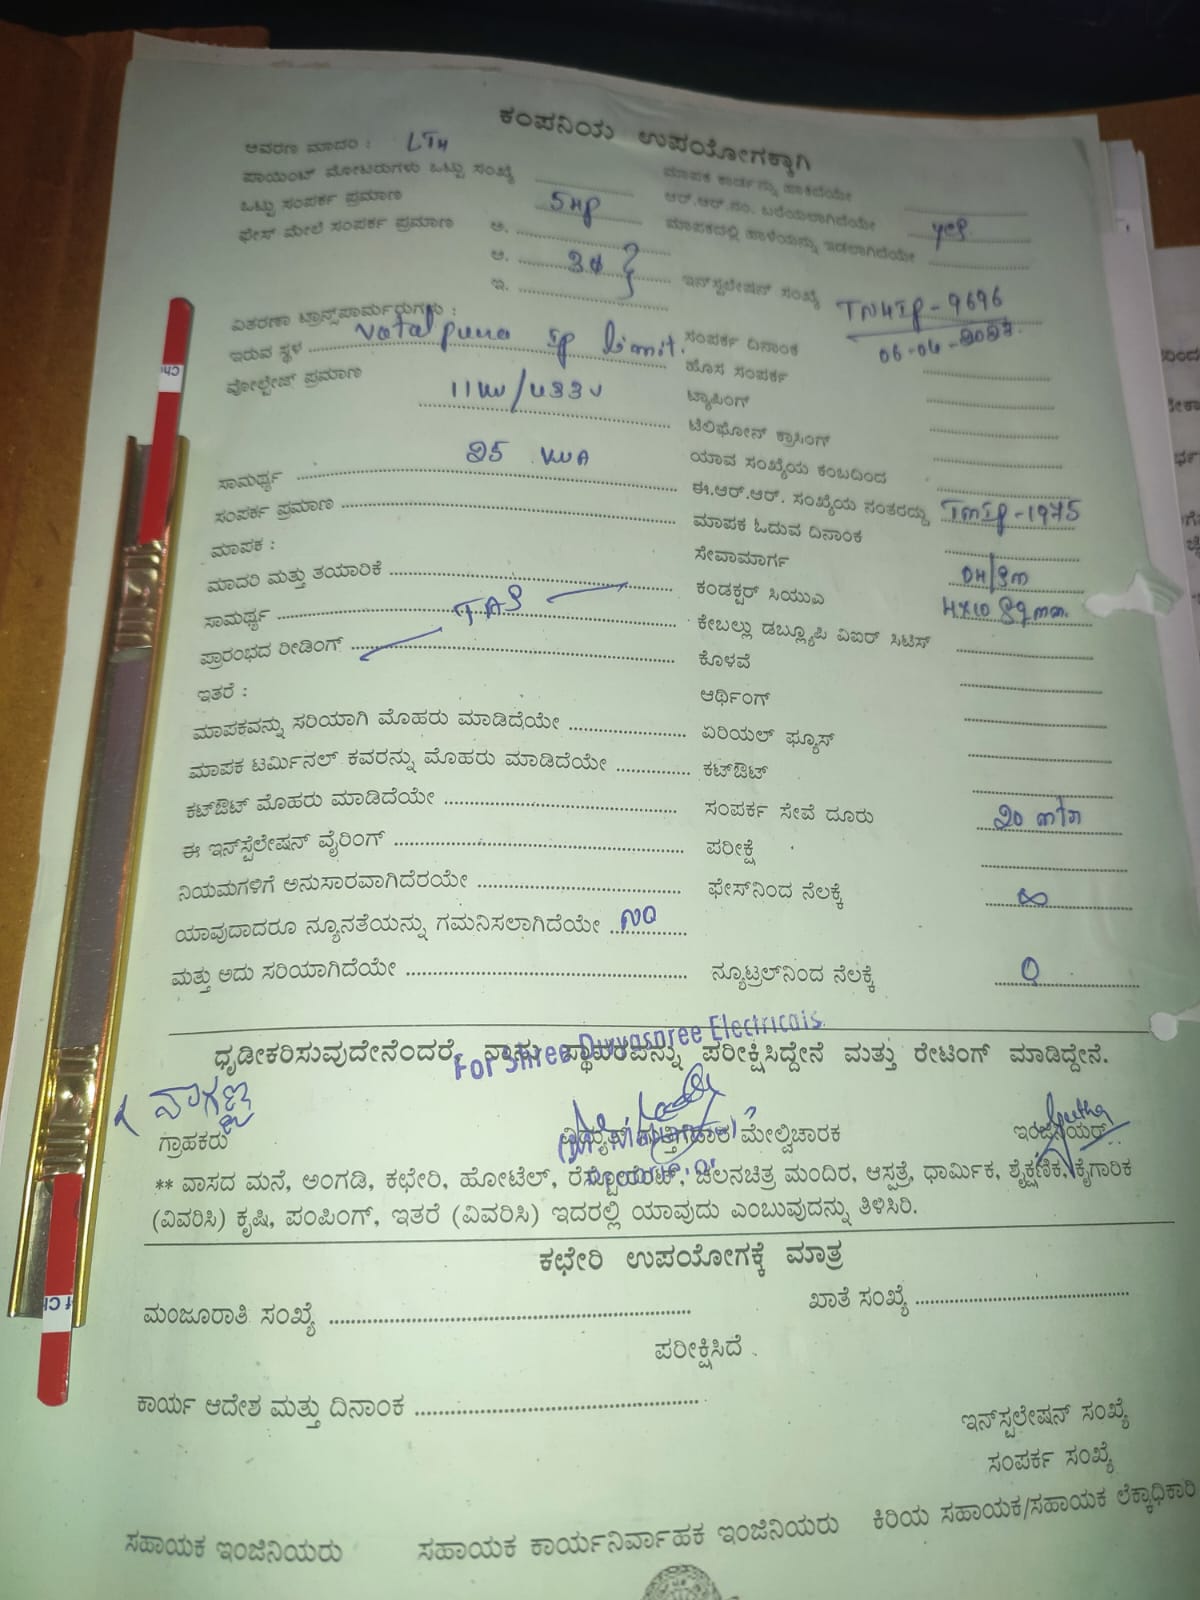 ಕಂಪನಿಯ ಉಪಯೋಗಕ್ಕಾಗಿ
ಆವರಣ ಮಾದರಿ : LT4
ಪಾಯಿಂಟ್ ಮೋಟರುಗಳು ಒಟ್ಟು ಸಂಖ್ಯೆ
ಒಟ್ಟು ಸಂಪರ್ಕ ಪ್ರಮಾಣ 5HP
ಫೇಸ್ ಮೇಲೆ ಸಂಪರ್ಕ ಪ್ರಮಾಣ ಅ.
ಆ. 3φ
ಇ.
ವಿತರಣಾ ಟ್ರಾನ್ಸ್‌ಫಾರ್ಮರುಗಳು :
ಇರುವ ಸ್ಥಳ Vatalpura IP limit.
ವೋಲ್ಟೇಜ್ ಪ್ರಮಾಣ 11KV/433V
ಸಾಮರ್ಥ್ಯ 25 KVA
ಸಂಪರ್ಕ ಪ್ರಮಾಣ
ಮಾಪಕ :
ಮಾದರಿ ಮತ್ತು ತಯಾರಿಕೆ
ಸಾಮರ್ಥ್ಯ
ಪ್ರಾರಂಭದ ರೀಡಿಂಗ್
ಇತರೆ :
ಮಾಪಕವನ್ನು ಸರಿಯಾಗಿ ಮೊಹರು ಮಾಡಿದೆಯೇ
ಮಾಪಕ ಟರ್ಮಿನಲ್ ಕವರನ್ನು ಮೊಹರು ಮಾಡಿದೆಯೇ
ಕಟ್‌ಔಟ್ ಮೊಹರು ಮಾಡಿದೆಯೇ
ಈ ಇನ್‌ಸ್ಟೆಲೇಷನ್ ವೈರಿಂಗ್
ನಿಯಮಗಳಿಗೆ ಅನುಸಾರವಾಗಿದೆರಯೇ
ಯಾವುದಾದರೂ ನ್ಯೂನತೆಯನ್ನು ಗಮನಿಸಲಾಗಿದೆಯೇ NO
ಮತ್ತು ಅದು ಸರಿಯಾಗಿದೆಯೇ
ಮಾಪಕ ಕಾರ್ಡನ್ನು ಹಾಕಿದೆಯೇ
ಆರ್.ಆರ್.ನಂ. ಬರೆಯಲಾಗಿದೆಯೇ yes
ಮಾಪಕದಲ್ಲಿ ಹಾಳೆಯನ್ನು ಇಡಲಾಗಿದೆಯೇ
ಇನ್‌ಸ್ಟಲೇಷನ್ ಸಂಖ್ಯೆ TN4IP-9696
ಸಂಪರ್ಕ ದಿನಾಂಕ
ಹೊಸ ಸಂಪರ್ಕ
ಟ್ಯಾಪಿಂಗ್
ಟೆಲಿಫೋನ್ ಕ್ರಾಸಿಂಗ್
ಯಾವ ಸಂಖ್ಯೆಯ ಕಂಬದಿಂದ
ಈ.ಆರ್.ಆರ್. ಸಂಖ್ಯೆಯ ನಂತರದ್ದು
ಮಾಪಕ ಓದುವ ದಿನಾಂಕ
ಸೇವಾಮಾರ್ಗ
ಕಂಡಕ್ಟರ್ ಸಿಯುಎ
ಕೇಬಲ್ಲು ಡಬ್ಲ್ಯೂಪಿ ವಿಐಆರ್ ಸಿಟಿಸ್
ಕೊಳವೆ
ಆರ್ಥಿಂಗ್
ಏರಿಯಲ್ ಫ್ಯೂಸ್
ಕಟ್‌ಔಟ್
ಸಂಪರ್ಕ ಸೇವೆ ದೂರು
ಪರೀಕ್ಷೆ
ಫೇಸ್‌ನಿಂದ ನೆಲಕ್ಕೆ ∞
ನ್ಯೂಟ್ರಲ್‌ನಿಂದ ನೆಲಕ್ಕೆ 0
ಧೃಡೀಕರಿಸುವುದೇನೆಂದರೆ, ನಾನು ಸ್ಥಾವರವನ್ನು ಪರೀಕ್ಷಿಸಿದ್ದೇನೆ ಮತ್ತು ರೇಟಿಂಗ್ ಮಾಡಿದ್ದೇನೆ.
ನಾಗಣ್ಣ
ಗ್ರಾಹಕರು ಮೇಲ್ವಿಚಾರಕ ಇಂಜಿನಿಯರ್
** ವಾಸದ ಮನೆ, ಅಂಗಡಿ, ಕಛೇರಿ, ಹೋಟೆಲ್, ರೆಸ್ಟೋರೆಂಟ್, ಚಲನಚಿತ್ರ ಮಂದಿರ, ಆಸ್ಪತ್ರೆ, ಧಾರ್ಮಿಕ, ಶೈಕ್ಷಣಿಕ, ಕೈಗಾರಿಕ
(ವಿವರಿಸಿ) ಕೃಷಿ, ಪಂಪಿಂಗ್, ಇತರೆ (ವಿವರಿಸಿ) ಇದರಲ್ಲಿ ಯಾವುದು ಎಂಬುವುದನ್ನು ತಿಳಿಸಿರಿ.
ಕಛೇರಿ ಉಪಯೋಗಕ್ಕೆ ಮಾತ್ರ
ಮಂಜೂರಾತಿ ಸಂಖ್ಯೆ ಖಾತೆ ಸಂಖ್ಯೆ
ಪರೀಕ್ಷಿಸಿದೆ
ಕಾರ್ಯ ಆದೇಶ ಮತ್ತು ದಿನಾಂಕ
ಇನ್‌ಸ್ಟಲೇಷನ್ ಸಂಖ್ಯೆ
ಸಂಪರ್ಕ ಸಂಖ್ಯೆ
ಸಹಾಯಕ ಇಂಜಿನಿಯರು ಸಹಾಯಕ ಕಾರ್ಯನಿರ್ವಾಹಕ ಇಂಜಿನಿಯರು ಕಿರಿಯ ಸಹಾಯಕ/ಸಹಾಯಕ ಲೆಕ್ಕಾಧಿಕಾರಿ